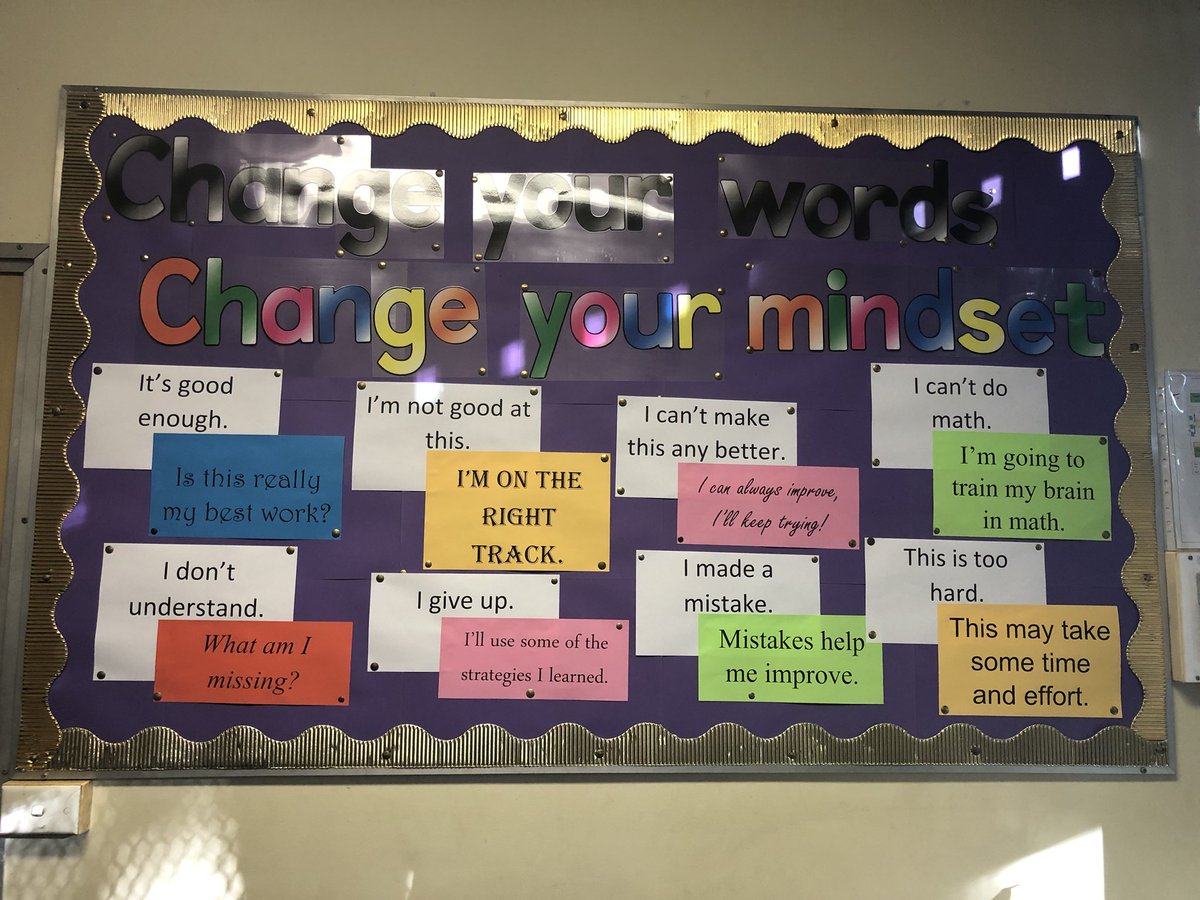 Change your words
Change your mindset
It's good
enough.
Is this really
my best work?
I'm not good at
this.
I'M ON THE
RIGHT
TRACK.
I can't make
this any better.
I can always improve,
I'll keep trying!
I can't do
math.
I'm going to
train my brain
in math.
I don't
understand.
What am I
missing?
I give up.
I'll use some of the
strategies I learned.
I made a
mistake.
Mistakes help
me improve.
This is too
hard.
This may take
some time
and effort.